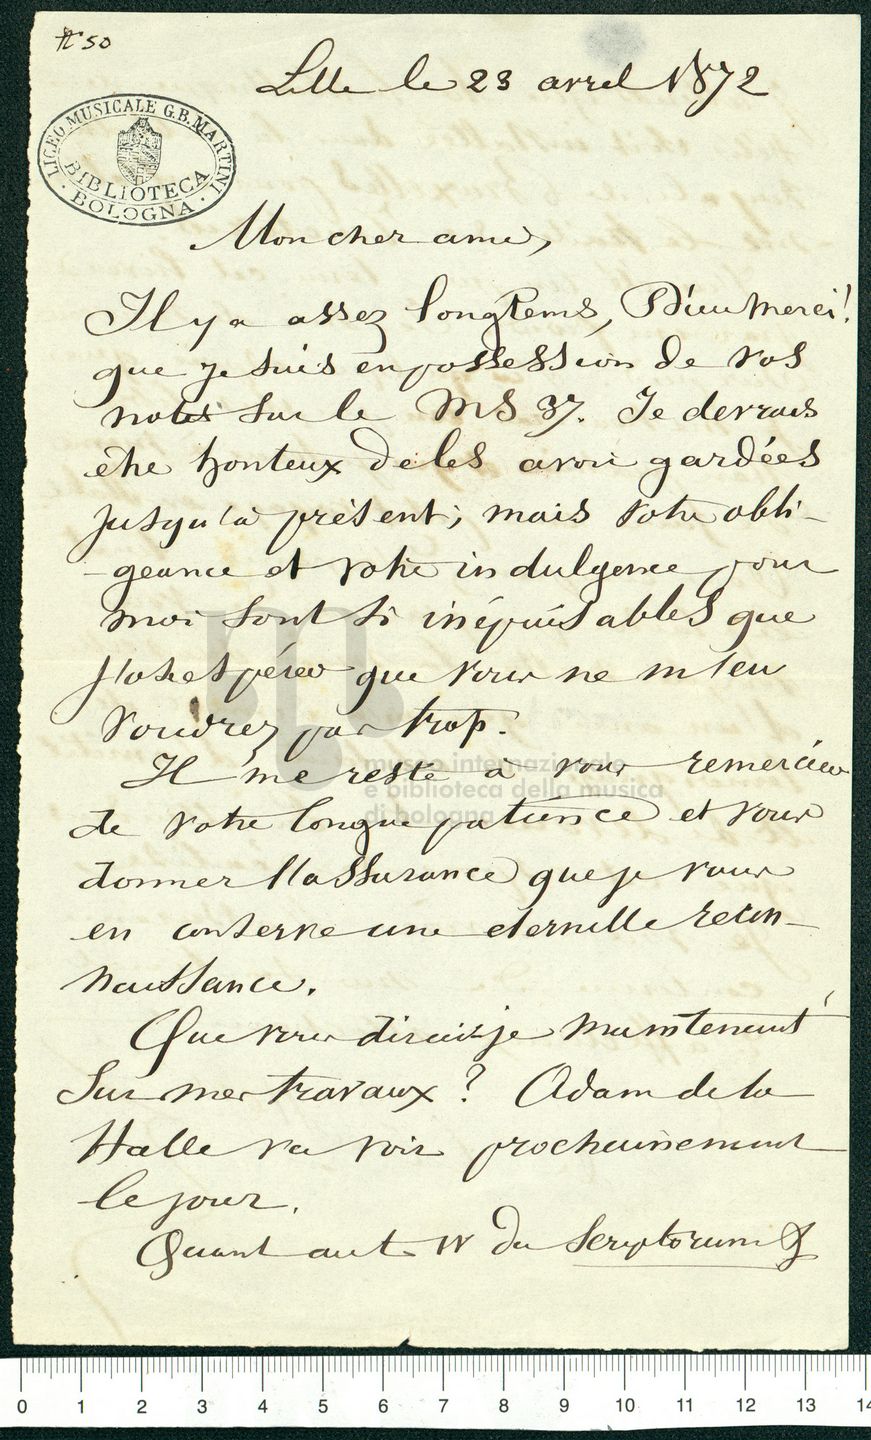 N° 50
Lille le 23 avril 1872
LICEO MUSICALE G.B. MARTINI
BIBLIOTECA
BOLOGNA
Mon cher ami,
Il y a assez longtems, Dieu merci!
que je suis en possession de vos
notes sur le MS 37. Je devrais
être honteux de les avoir gardées
jusqu'à présent; mais votre obli-
-geance et votre indulgence pour
moi sont si inépuisables que
j'ose espérer que vous ne m'en
voudrez pas trop.
Il me reste à vous remercier
museo internazionale
e biblioteca della musica
di bologna
de votre longue patience et vous
donner l'assurance que je vous
en conserve une eternelle recon-
naissance.
Que vous dirais-je maintenant
sur mes travaux? Adam de la
Halle va voir prochainement
le jour.
Quant au t. IV du Scriptorum
0 1 2 3 4 5 6 7 8 9 10 11 12 13 14